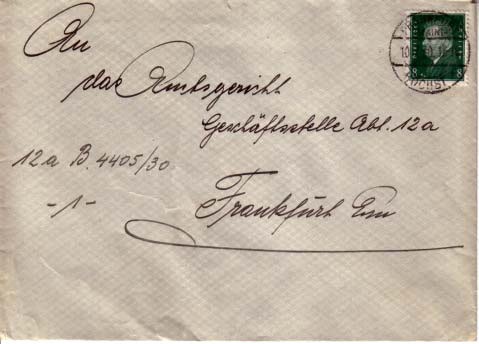 An
das Amtsgericht
Geschäftsstelle Abt. 12a
12a B. 4405/30
-1-
Frankfurt
8 8
HÖCHST